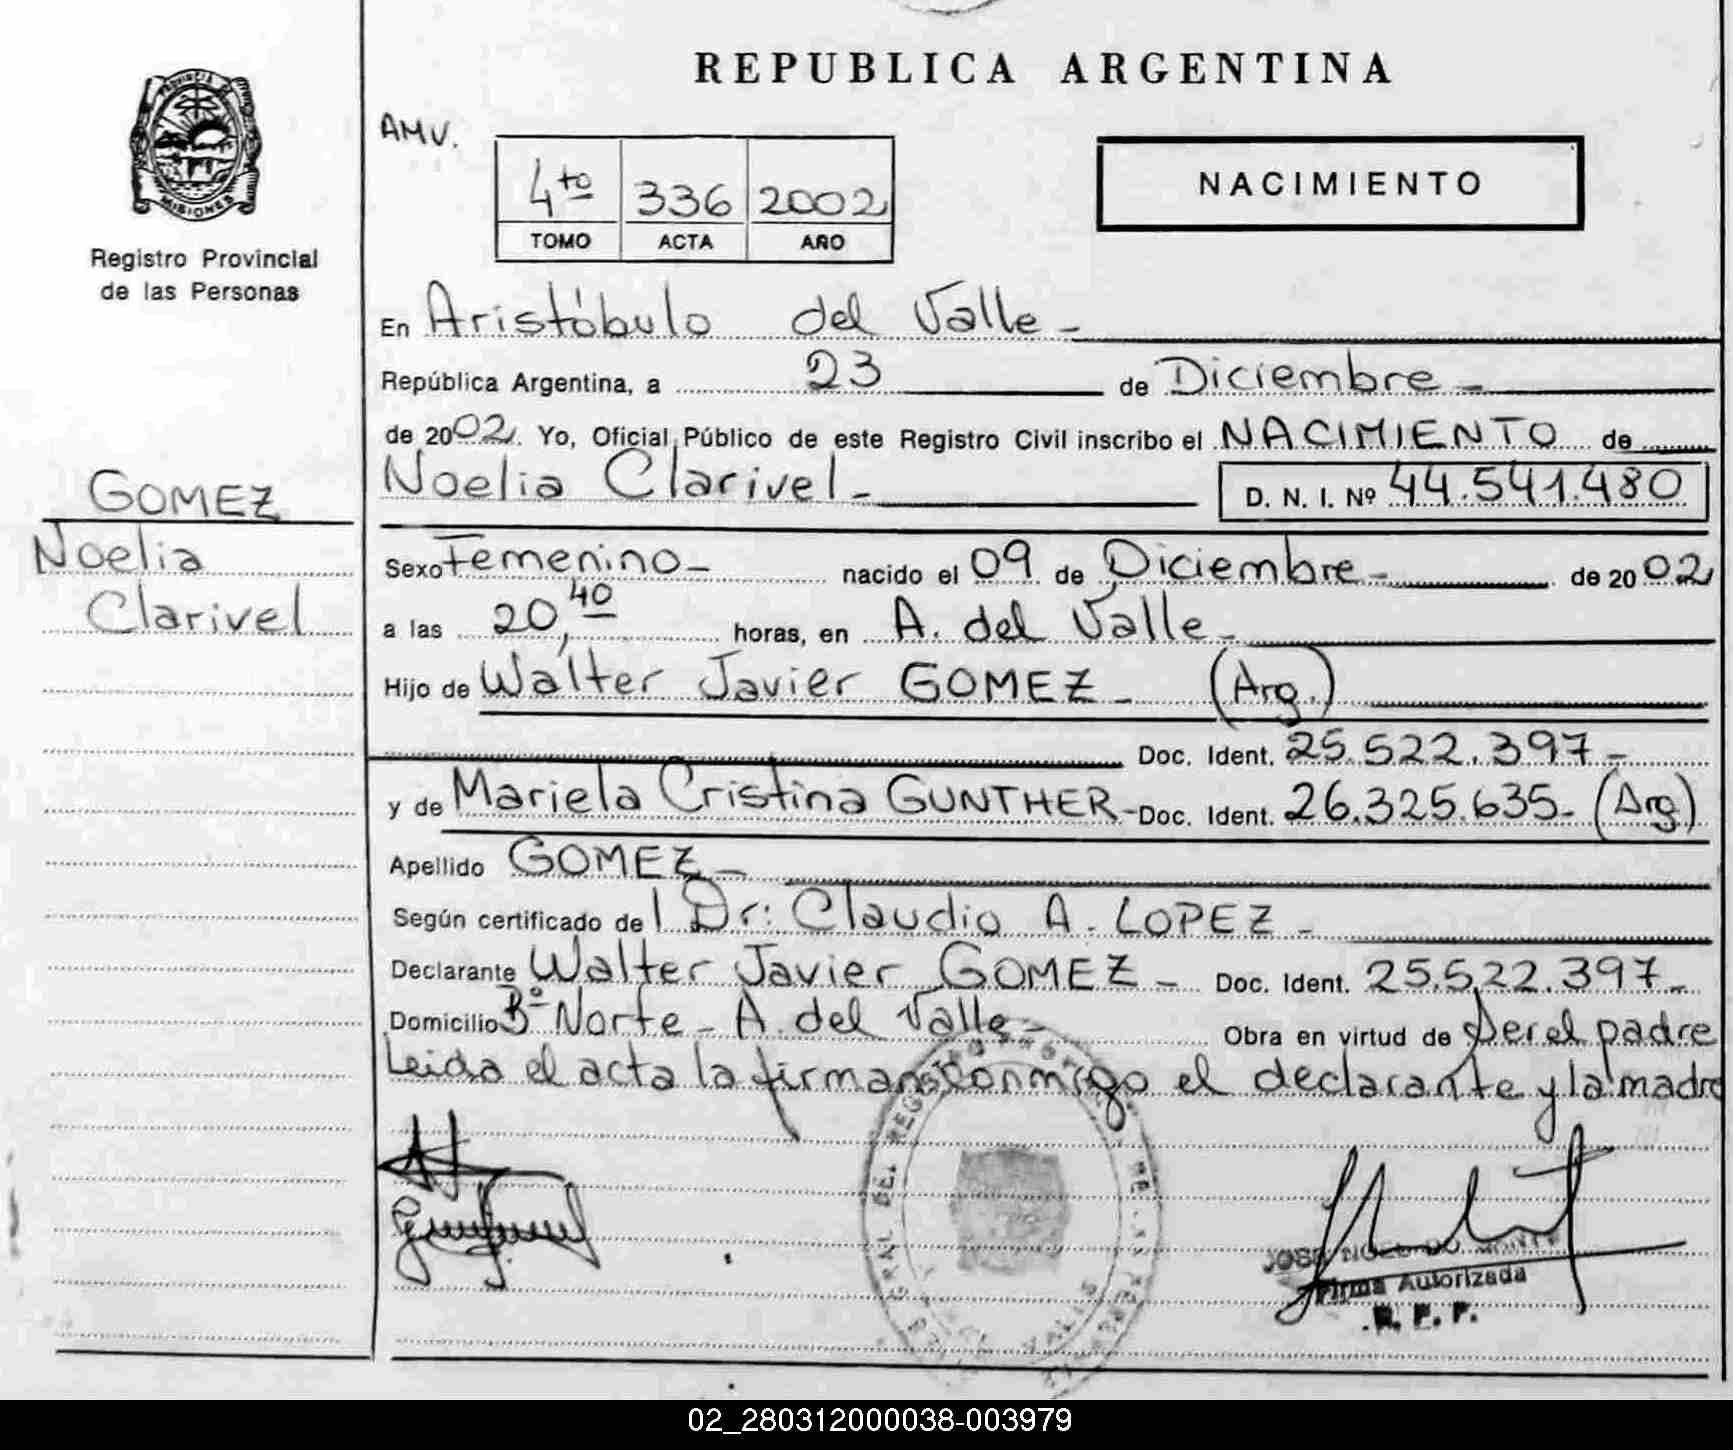 REPUBLICA ARGENTINA
PROVINCIA DE
MISIONES
Registro Provincial
de las Personas
AMV.
4to 336 2002
TOMO ACTA AÑO
NACIMIENTO
En Aristóbulo del Valle -
República Argentina, a 23 de Diciembre -
de 2002. Yo, Oficial Público de este Registro Civil inscribo el NACIMIENTO de
Noelia Clarivel - D. N. I. Nº 44.541.480
GOMEZ
Noelia
Clarivel
Sexo Femenino - nacido el 09 de Diciembre - de 2002
a las 20,40 horas, en A. del Valle -
Hijo de Walter Javier GOMEZ - (Arg.)
Doc. Ident. 25.522.397 -
y de Mariela Cristina GUNTHER - Doc. Ident. 26.325.635 - (Arg)
Apellido GOMEZ -
Según certificado del Dr: Claudio A. LOPEZ -
Declarante Walter Javier GOMEZ - Doc. Ident. 25.522.397 -
Domicilio Bº Norte - A. del Valle - Obra en virtud de ser el padre
Leida el acta la firman conmigo el declarante y la madre
Firma Autorizada
R. P. P.
02_280312000038-003979